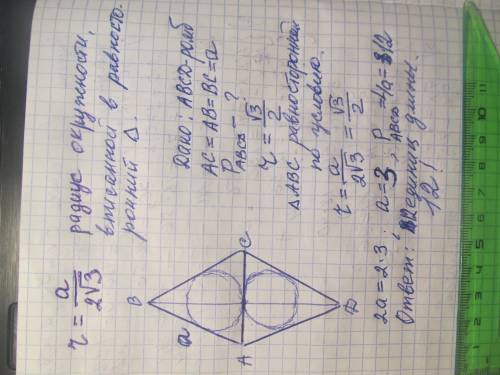 r = a/2√3 радиус окружности,
вписанной в равносто-
ронний Δ.
Дано: ABCD-ромб
AC=AB=BC=a
P_ABCD - ?
r = √3/2
ΔABC равносторонний
по условию.
r = a/2√3 = √3/2
2a = 2·3; a = 3, P_ABCD = 4a =
Ответ: единиц длины.
12!
B
a
A
C
D
1 2 3 4 5 6 7 8 9 10 11